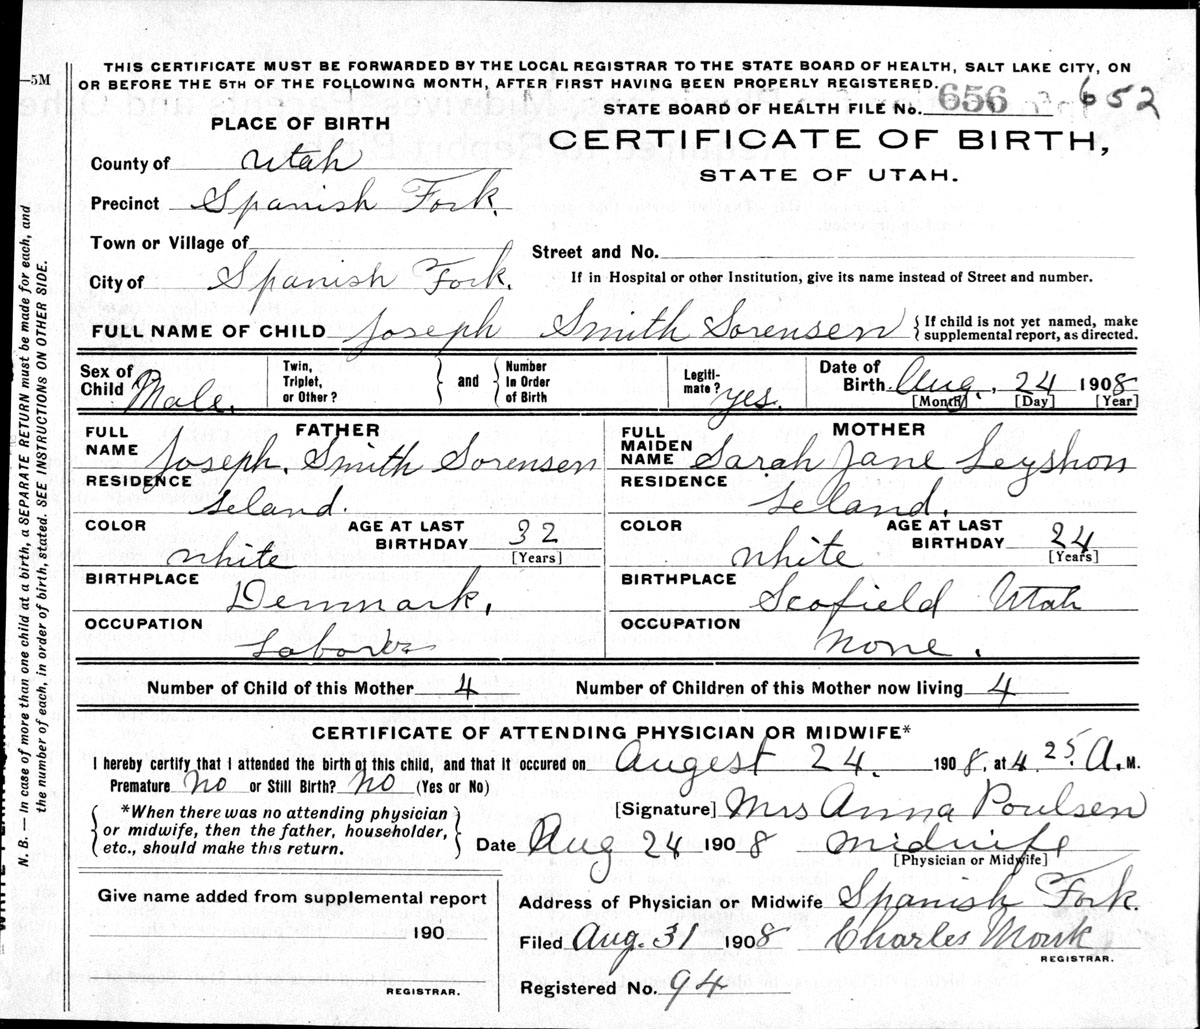 THIS CERTIFICATE MUST BE FORWARDED BY THE LOCAL REGISTRAR TO THE STATE BOARD OF HEALTH, SALT LAKE CITY, ON
OR BEFORE THE 5TH OF THE FOLLOWING MONTH, AFTER FIRST HAVING BEEN PROPERLY REGISTERED.
—5M
STATE BOARD OF HEALTH FILE No. 656 652
PLACE OF BIRTH
CERTIFICATE OF BIRTH,
STATE OF UTAH.
County of Utah
Precinct Spanish Fork.
Town or Village of
Street and No.
City of Spanish Fork.
If in Hospital or other Institution, give its name instead of Street and number.
FULL NAME OF CHILD Joseph Smith Sorensen {If child is not yet named, make
supplemental report, as directed.
Sex of Child Male.
Twin, Triplet, or Other? } and { Number In Order of Birth
Legiti-mate? yes.
Date of Birth. Aug. 24 1908
[Month] [Day] [Year]
FATHER
FULL NAME Joseph. Smith Sorensen
RESIDENCE Leland.
COLOR White
AGE AT LAST BIRTHDAY 32 [Years]
BIRTHPLACE Denmark,
OCCUPATION Laborer
MOTHER
FULL MAIDEN NAME Sarah Jane Leyshon
RESIDENCE Leland.
COLOR White
AGE AT LAST BIRTHDAY 24 [Years]
BIRTHPLACE Scofield Utah
OCCUPATION None.
Number of Child of this Mother 4 Number of Children of this Mother now living 4
CERTIFICATE OF ATTENDING PHYSICIAN OR MIDWIFE*
I hereby certify that I attended the birth of this child, and that it occured on Augest 24. 1908, at 4 25. A. M.
Premature No or Still Birth? No (Yes or No)
*When there was no attending physician
or midwife, then the father, householder,
etc., should make this return.
[Signature] Mrs Anna Poulsen
Date Aug 24 1908 Midwife
[Physician or Midwife]
Give name added from supplemental report
190
REGISTRAR.
Address of Physician or Midwife Spanish Fork.
Filed Aug. 31 1908 Charles Monk
REGISTRAR.
Registered No. 94
N. B. — In case of more than one child at a birth, a SEPARATE RETURN must be made for each, and
the number of each, in order of birth, stated. SEE INSTRUCTIONS ON OTHER SIDE.